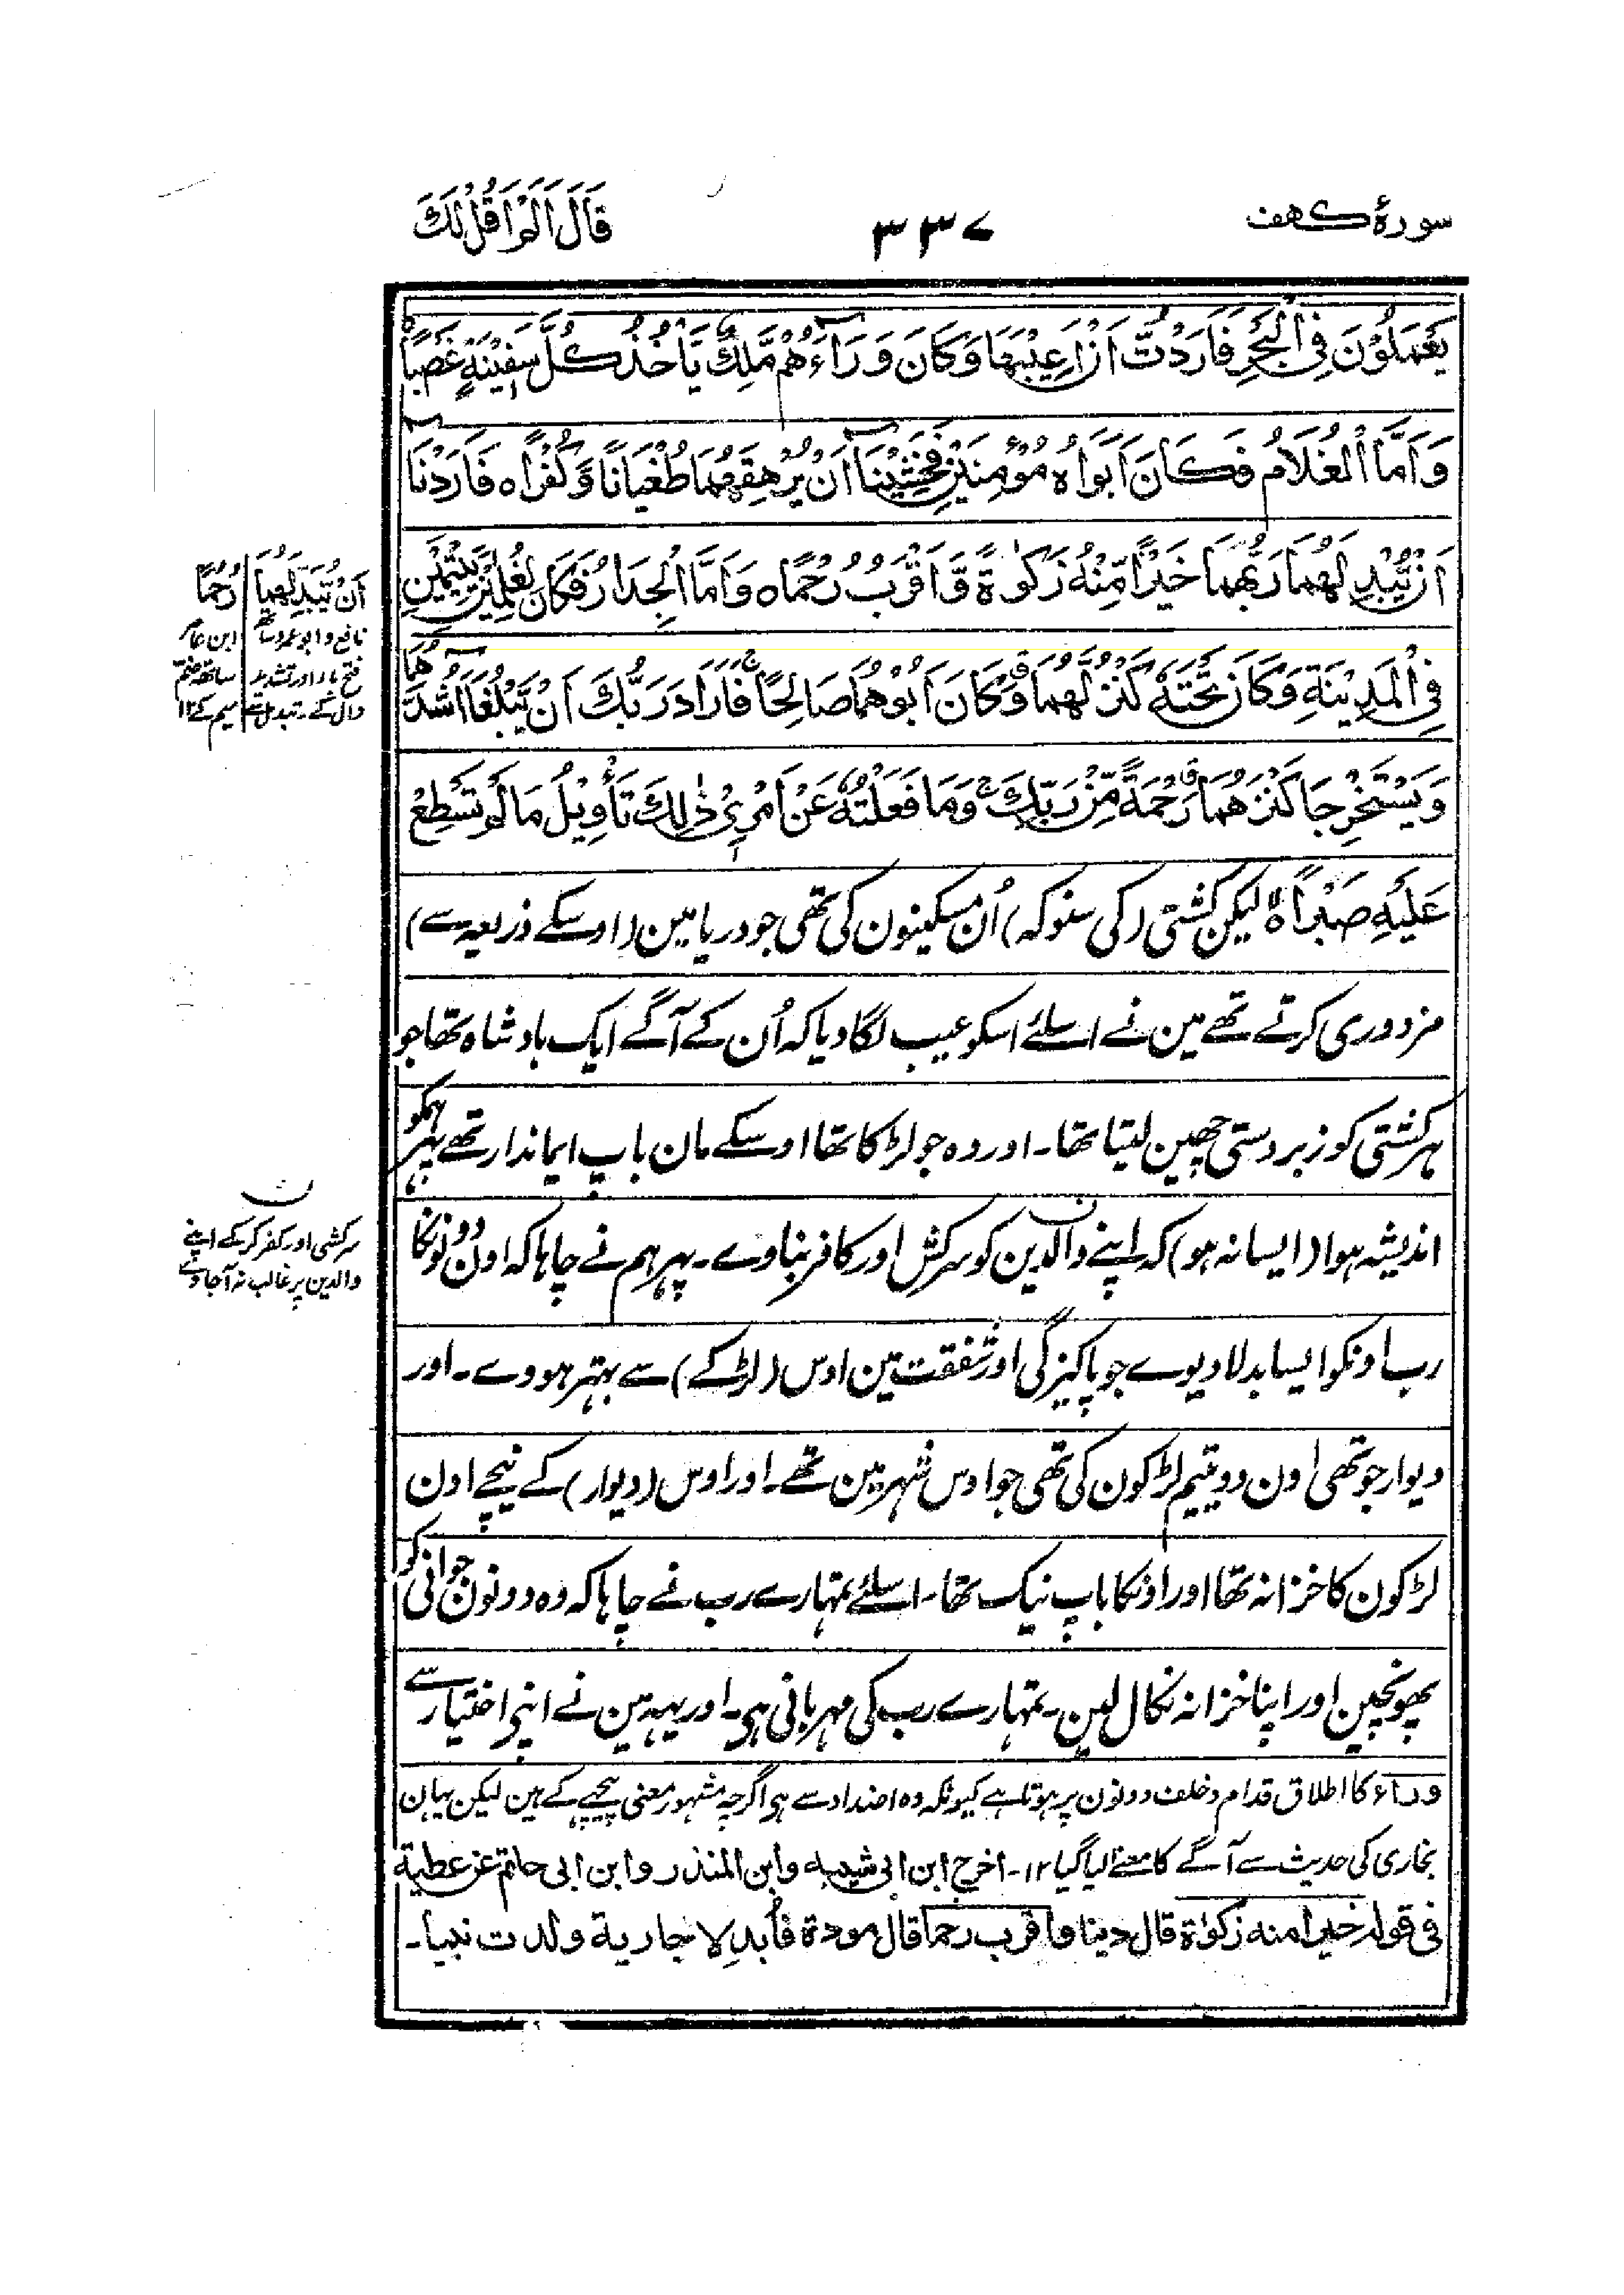 سورۂ کهف
۳۳۷
قَالَ اَلَمْ اَقُلْ لَّكَ
يَعْمَلُوْنَ فِى الْبَحْرِ فَاَرَدْتُّ اَنْ اَعِيْبَهَا وَكَانَ وَرَآءَهُمْ مَّلِكٌ يَّاْخُذُ كُلَّ سَفِيْنَةٍ غَصْبًا
وَاَمَّا الْغُلَامُ فَكَانَ اَبَوَاهُ مُؤْمِنَيْنِ فَخَشِيْنَآ اَنْ يُّرْهِقَهُمَا طُغْيَانًا وَّكُفْرًا ه فَاَرَدْنَا
اَنْ يُّبْدِلَهُمَا رَبُّهُمَا خَيْرًا مِّنْهُ زَكٰوةً وَّاَقْرَبُ رُحْمًا ه وَاَمَّا الْجِدَارُ فَكَانَ لِغُلٰمَيْنِ يَتِيْمَيْنِ
فِى الْمَدِيْنَةِ وَكَانَ تَحْتَهٗ كَنْزٌ لَّهُمَا وَكَانَ اَبُوْهُمَا صَالِحًا ج فَاَرَادَ رَبُّكَ اَنْ يَّبْلُغَآ اَشُدَّهُمَا
وَيَسْتَخْرِجَا كَنْزَهُمَا رَحْمَةً مِّنْ رَّبِّكَ ج وَمَا فَعَلْتُهٗ عَنْ اَمْرِىْ ذٰلِكَ تَاْوِيْلُ مَا لَمْ تَسْطِعْ
عَلَيْهِ صَبْرًا ه لیکن کشتی (کی سنو کہ) اُن مسکینون کی تھی جو دریا مین (اوسکے ذریعہ سے)
مزدوری کرتے تھے مین نے اسلئے اسکو عیب لگا دیا کہ اُن کے آگے ایک بادشاہ تھا جو
ہر کشتی کو زبردستی چھین لیتا تھا۔ اور وہ جو لڑکا تھا اوسکے مان باپ ایماندار تھے پہر ہمکو
اندیشہ ہوا (ایسا نہ ہو) کہ اپنے والدین کو سرکش اور کافر بنا وے۔ پہر ہم نے چاہا کہ اون دونونکا
رب اونکو ایسا بدلا دیوے جو پاکیزگی اور شفقت مین اوس (لڑکے) سے بہتر ہووے۔ اور
دیوار جو تھی اون دو یتیم لڑکون کی تھی جو اوس شہر مین تھے۔ اور اوس (دیوار) کے نیچے اون
لڑکون کا خزانہ تھا اور اونکا باپ نیک تھا۔ اسلئے تمہارے رب نے چاہا کہ وہ دونون جوانی کو
پہونچین اور اپنا خزانہ نکال لین۔ تمہارے رب کی مہربانی ہی۔ اور یہہ مین نے اپنے اختیار سے
وراء کا اطلاق قدام و خلف دونون پر ہوتا ہے کیونکہ وہ اضداد سے ہی اگرچہ مشہور معنی پیچھے کے ہین لیکن یہان
بخاری کی حدیث سے آگے کا معنے لیا گیا ۱۲۔ اخرج ابن ابی شیبه وابن المنذر وابن ابی حاتم عن عطیة
فی قوله خیرا منه زكوة قال دینا واقرب رحما قال مودة فابدلا جاریة ولدت نبیا۔
اَنْ يُّبَدِّلَهُمَا
نافع و ابو عمرو سا
فتح باء اور تشدید
دال کے۔ تبدیل سے
رُحُمًا
ابن عامر
ساتھ ضم
میم کے ۱۲
ن
سرکشی اور کفر کرکے اپنے
والدین پر غالب نہ آجاوے